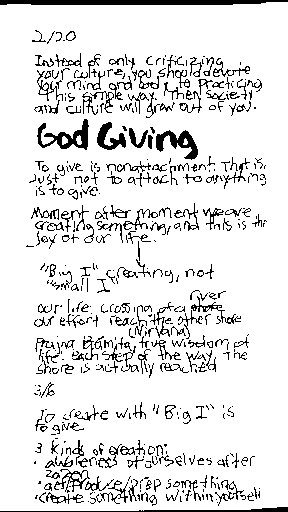 2/20
Instead of only criticizing
your culture, you should devote
your mind and body to practicing
this simple way. Then society
and culture will grow out of you.
God Giving
To give is nonattachment. That is,
Just not to attach to anything
is to give.
Moment after moment we are
creating something, and this is the
joy of our life.
"Big I" creating, not
"small I"
our life: crossing of a river
our effort reach the other shore
(Nirvana)
Prajna Paramita, true wisdom of
life. Each step of the way, the
shore is actually reached
3/6
To create with "Big I" is
to give
3 kinds of creation:
· awareness of ourselves after
zazen
· act/produce/prep something
· create something within yourself